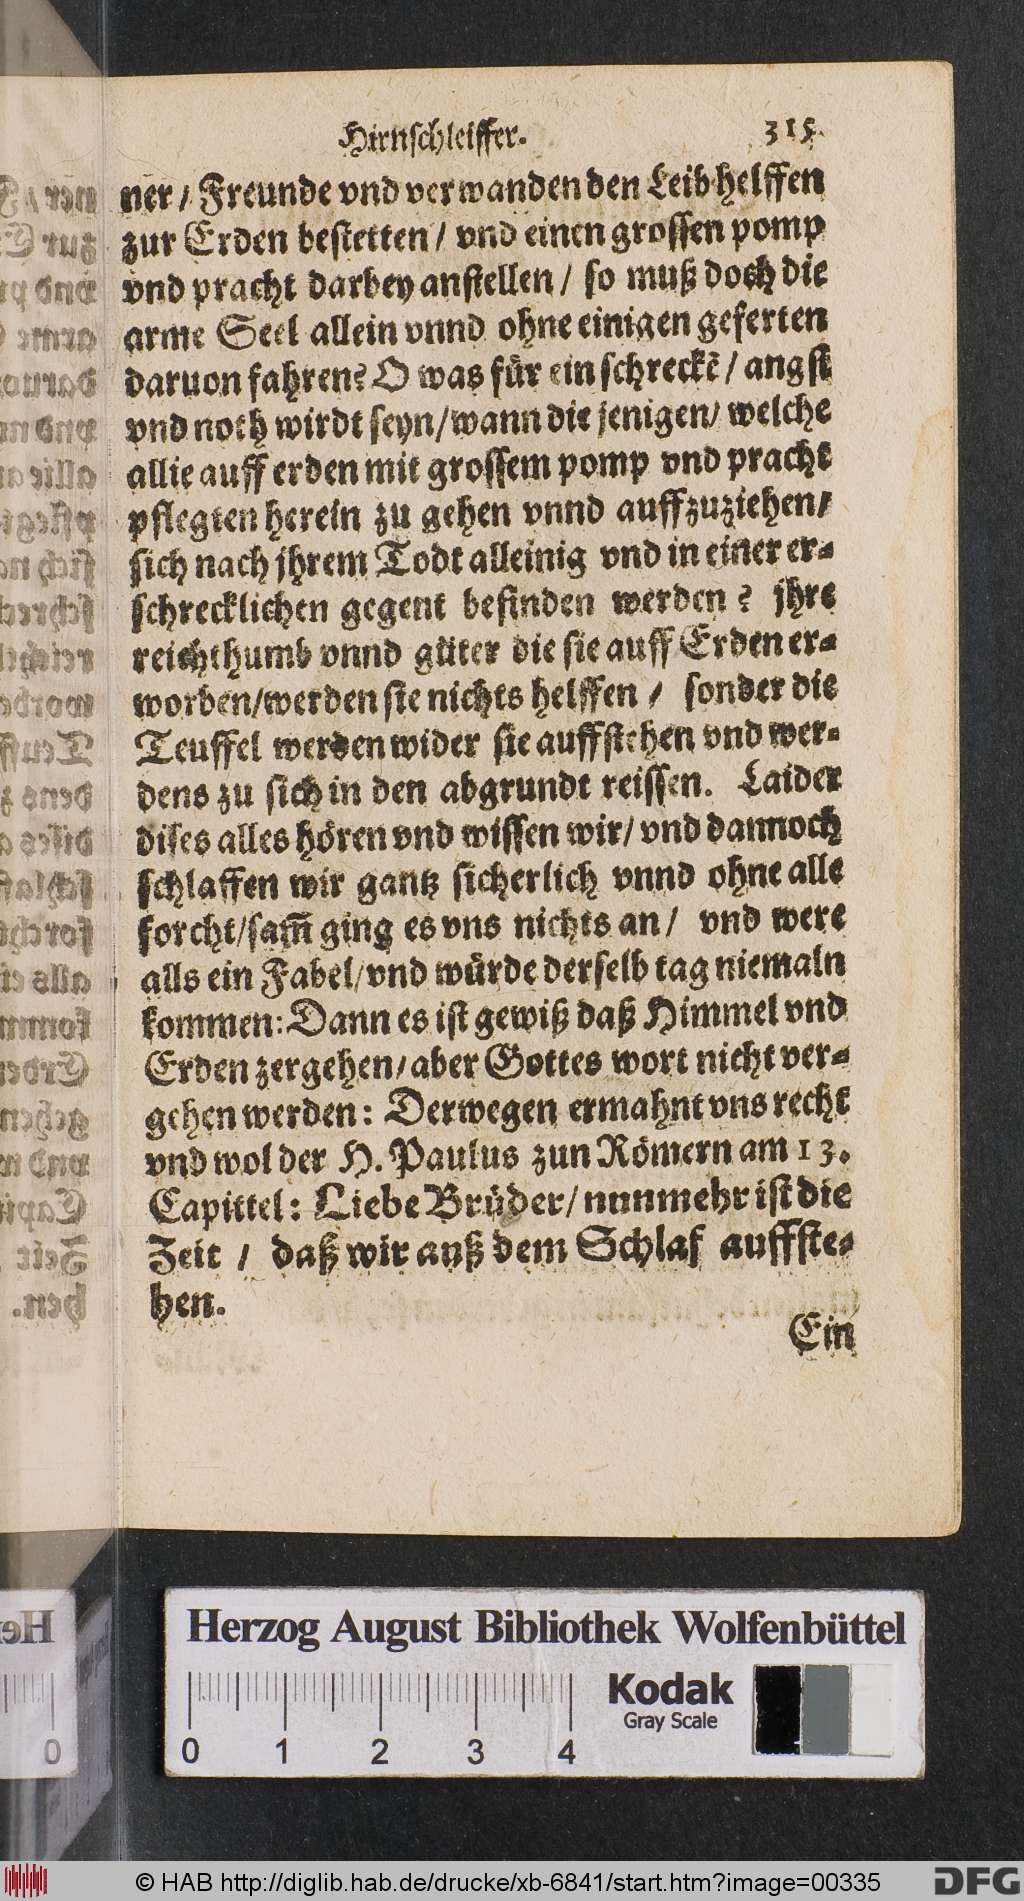 Hirnschleiffer. 315.
ner / Freunde vnd verwanden den Leib helffen
zur Erden bestetten / vnd einen grossen pomp
vnd pracht darbey anstellen / so muß doch die
arme Seel allein vnnd ohne einigen geferten
daruon fahren? O was für ein schreckẽ / angst
vnd noth wirdt seyn / wann die jenigen / welche
allie auff erden mit grossem pomp vnd pracht
pflegten herein zu gehen vnnd auffzuziehen /
sich nach jhrem Todt alleinig vnd in einer er-
schrecklichen gegent befinden werden? jhre
reichthumb vnnd güter die sie auff Erden er-
worben / werden sie nichts helffen / sonder die
Teuffel werden wider sie auffstehen vnd wer-
dens zu sich in den abgrundt reissen. Laider
dises alles hören vnd wissen wir / vnd dannoch
schlaffen wir gantz sicherlich vnnd ohne alle
forcht / sam̃ ging es vns nichts an / vnd were
alls ein Fabel / vnd würde derselb tag niemaln
kommen: Dann es ist gewiß daß Himmel vnd
Erden zergehen / aber Gottes wort nicht ver-
gehen werden: Derwegen ermahnt vns recht
vnd wol der H. Paulus zun Römern am 13.
Capittel: Liebe Brüder / nunmehr ist die
Zeit / daß wir auß dem Schlaf auffste-
hen.
Ein
Herzog August Bibliothek Wolfenbüttel
Kodak
Gray Scale
0 1 2 3 4
© HAB http://diglib.hab.de/drucke/xb-6841/start.htm?image=00335
DFG